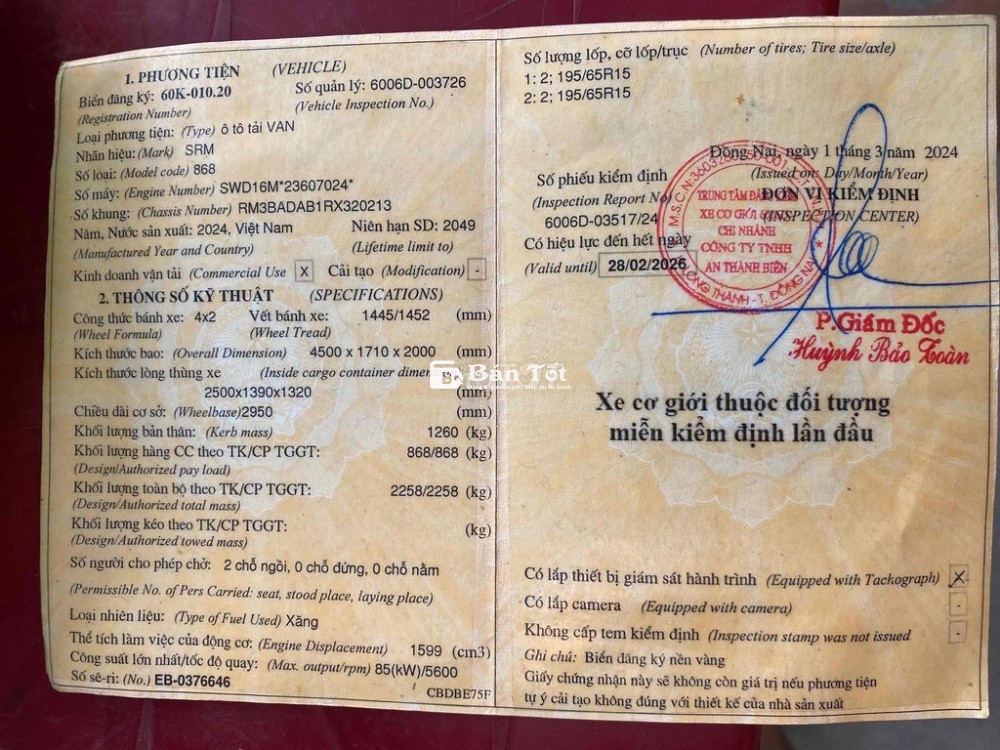 1. PHƯƠNG TIỆN (VEHICLE)
Biển đăng ký: 60K-010.20 Số quản lý: 6006D-003726
(Registration Number) (Vehicle Inspection No.)
Loại phương tiện: (Type) ô tô tải VAN
Nhãn hiệu: (Mark) SRM
Số loại: (Model code) 868
Số máy: (Engine Number) SWD16M*23607024*
Số khung: (Chassis Number) RM3BADAB1RX320213
Năm, Nước sản xuất: 2024, Việt Nam Niên hạn SD: 2049
(Manufactured Year and Country) (Lifetime limit to)
Kinh doanh vận tải (Commercial Use X Cải tạo (Modification) -
2. THÔNG SỐ KỸ THUẬT (SPECIFICATIONS)
Công thức bánh xe: 4x2 Vết bánh xe: 1445/1452 (mm)
(Wheel Formula) (Wheel Tread)
Kích thước bao: (Overall Dimension) 4500 x 1710 x 2000 (mm)
Kích thước lòng thùng xe (Inside cargo container
2500x1390x1320 (mm)
Chiều dài cơ sở: (Wheelbase)2950 (mm)
Khối lượng bản thân: (Kerb mass) 1260 (kg)
Khối lượng hàng CC theo TK/CP TGGT: 868/868 (kg)
(Design/Authorized pay load)
Khối lượng toàn bộ theo TK/CP TGGT: 2258/2258 (kg)
(Design/Authorized total mass)
Khối lượng kéo theo TK/CP TGGT: (kg)
(Design/Authorized towed mass)
Số người cho phép chở: 2 chỗ ngồi, 0 chỗ đứng, 0 chỗ nằm
(Permissible No. of Pers Carried: seat, stood place, laying place)
Loại nhiên liệu: (Type of Fuel Used) Xăng
Thể tích làm việc của động cơ: (Engine Displacement) 1599 (cm3)
Công suất lớn nhất/tốc độ quay: (Max. output/rpm) 85(kW)/5600
Số sê-ri: (No.) EB-0376646
CBDBE75F
Bán Tốt
Số lượng lốp, cỡ lốp/trục (Number of tires; Tire size/axle)
1: 2; 195/65R15
2: 2; 195/65R15
Đồng Nai, ngày 1 tháng 3 năm 2024
(Issued on: Day/Month/Year)
Số phiếu kiểm định ĐƠN VỊ KIỂM ĐỊNH
(Inspection Report No) (INSPECTION CENTER)
6006D-03517/24
Có hiệu lực đến hết ngày
(Valid until) 28/02/2026
TRUNG TÂM
XE CƠ GIỚI
CHI NHÁNH
CÔNG TY TNHH
AN THÀNH BIÊN
LONG THÀNH - T. ĐỒNG NAI
P.Giám Đốc
Huỳnh Bảo Toàn
Xe cơ giới thuộc đối tượng
miễn kiểm định lần đầu
Có lắp thiết bị giám sát hành trình (Equipped with Tackograph) X
Có lắp camera (Equipped with camera) -
Không cấp tem kiểm định (Inspection stamp was not issued -
Ghi chú: Biển đăng ký nền vàng
Giấy chứng nhận này sẽ không còn giá trị nếu phương tiện
tự ý cải tạo không đúng với thiết kế của nhà sản xuất